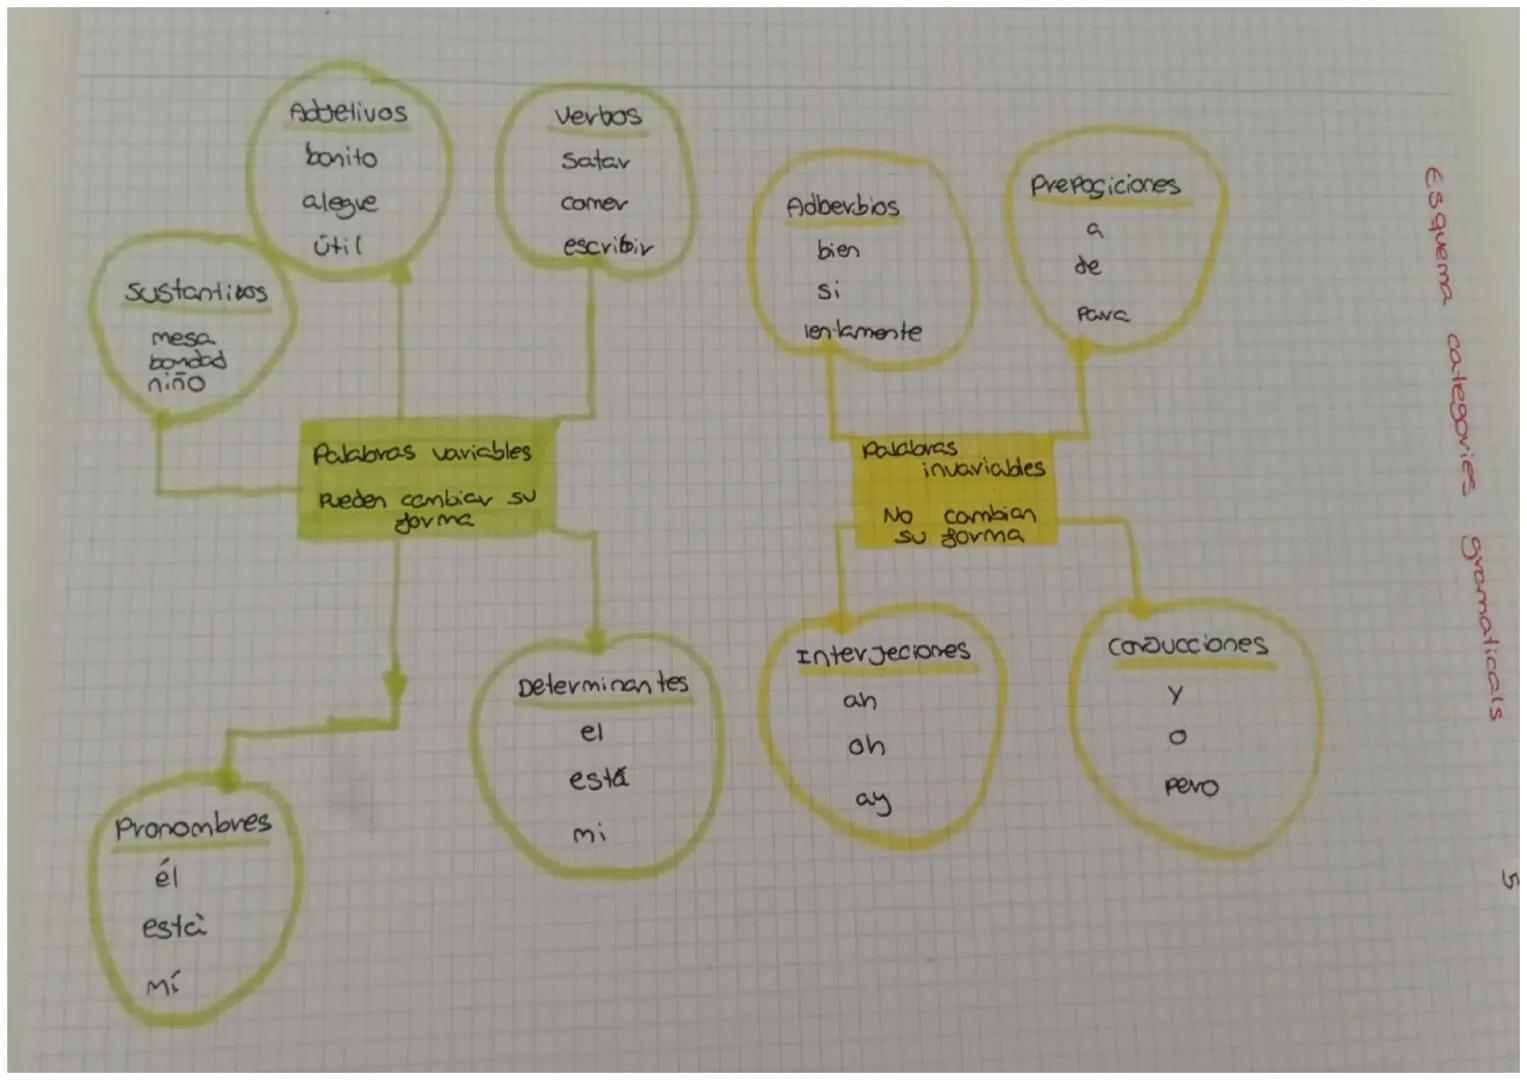 Esquema categories gramaticals
5
Adjetivos
bonito
alegre
útil
Verbos
Satar
comer
escribir
Sustantivos
mesa
bondad
niño
Palabras variables
Pueden cambiar su
forma
Determinantes
el
está
mi
Pronombres
él
està
mí
Adberbios
bien
si
lentamente
Preposiciones
a
de
para
Palabras
invariables
No cambian
su forma
Interjeciones
ah
oh
ay
Conjucciones
y
o
pero